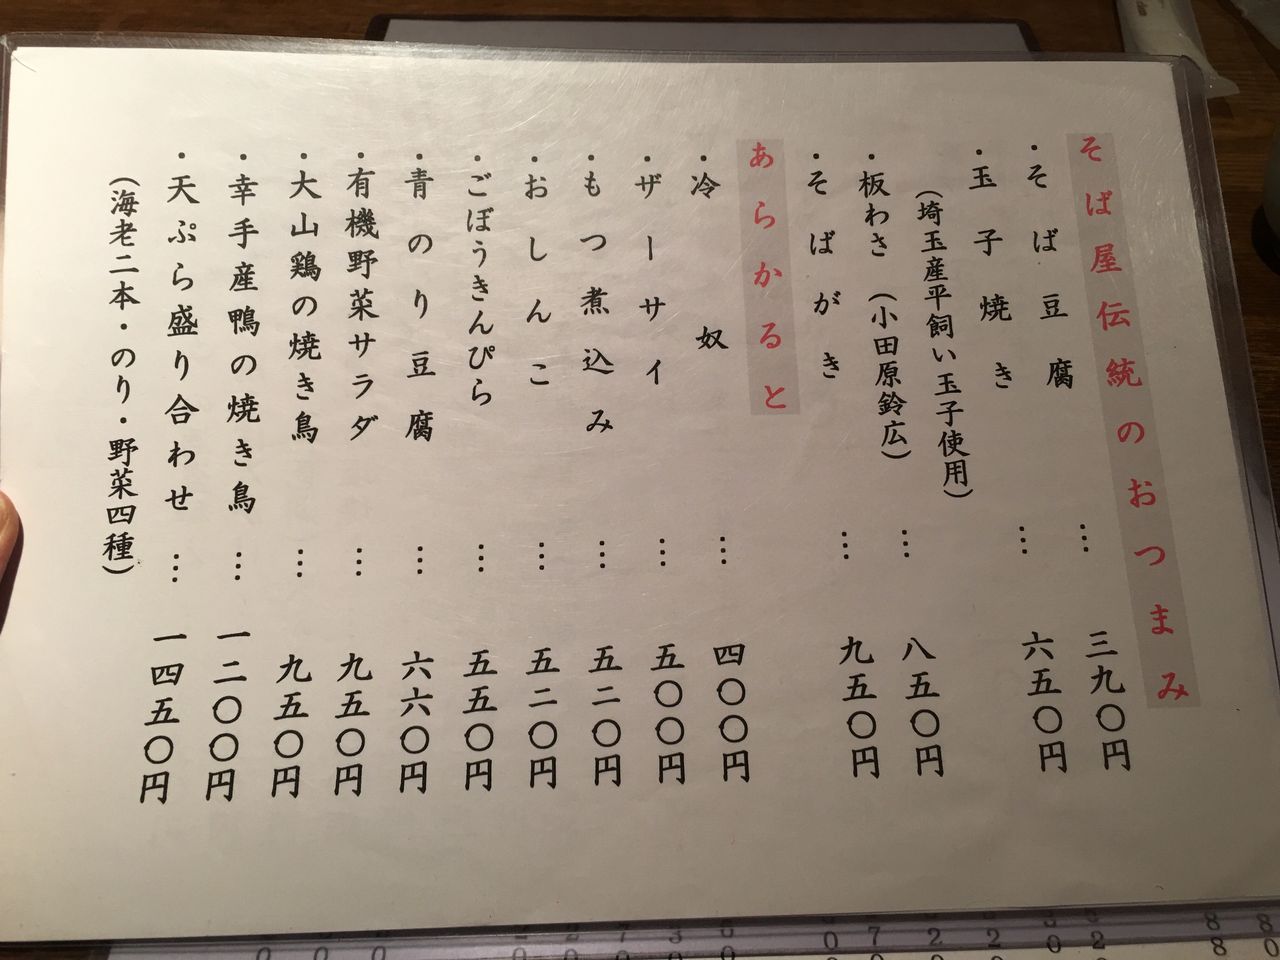 そば屋伝統のおつまみ
・そば豆腐 … 三九〇円
・玉子焼き … 六五〇円
（埼玉産平飼い玉子使用）
・板わさ（小田原鈴広） … 八五〇円
・そばがき … 九五〇円
あらかると
・冷奴 … 四〇〇円
・ザーサイ … 五〇〇円
・もつ煮込み … 五二〇円
・おしんこ … 五二〇円
・ごぼうきんぴら … 五五〇円
・青のり豆腐 … 六六〇円
・有機野菜サラダ … 九五〇円
・大山鶏の焼き鳥 … 九五〇円
・幸手産鴨の焼き鳥 … 一二〇〇円
・天ぷら盛り合わせ … 一四五〇円
（海老二本・のり・野菜四種）